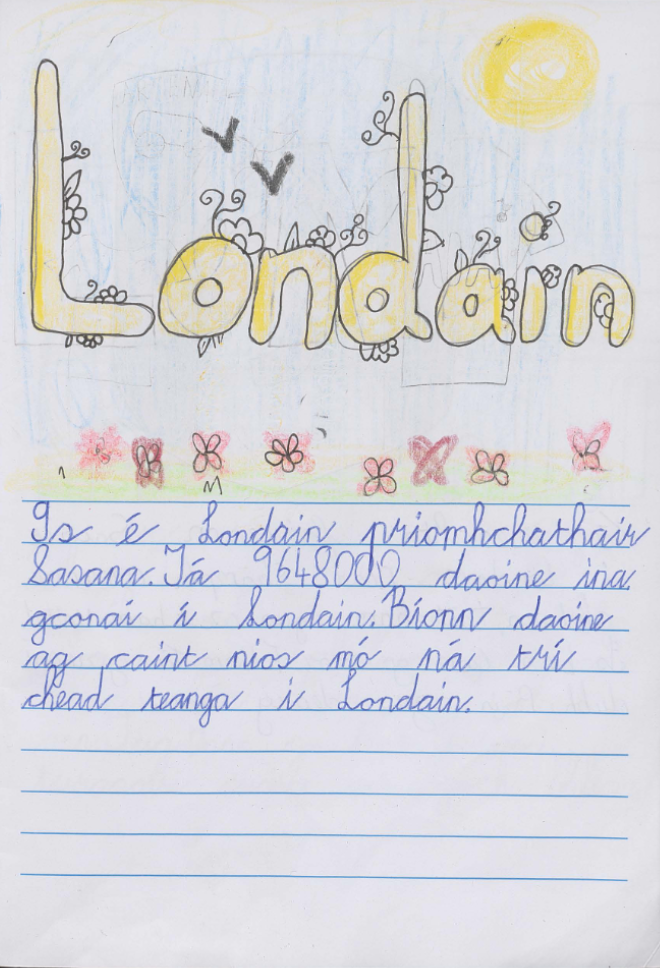 Londain
Is é Londain priomhchathair
Sasana. Tá 9648000 daoine ina
gconaí i Londain. Bíonn daoine
ag caint nios mó ná trí
chead teanga i Londain.